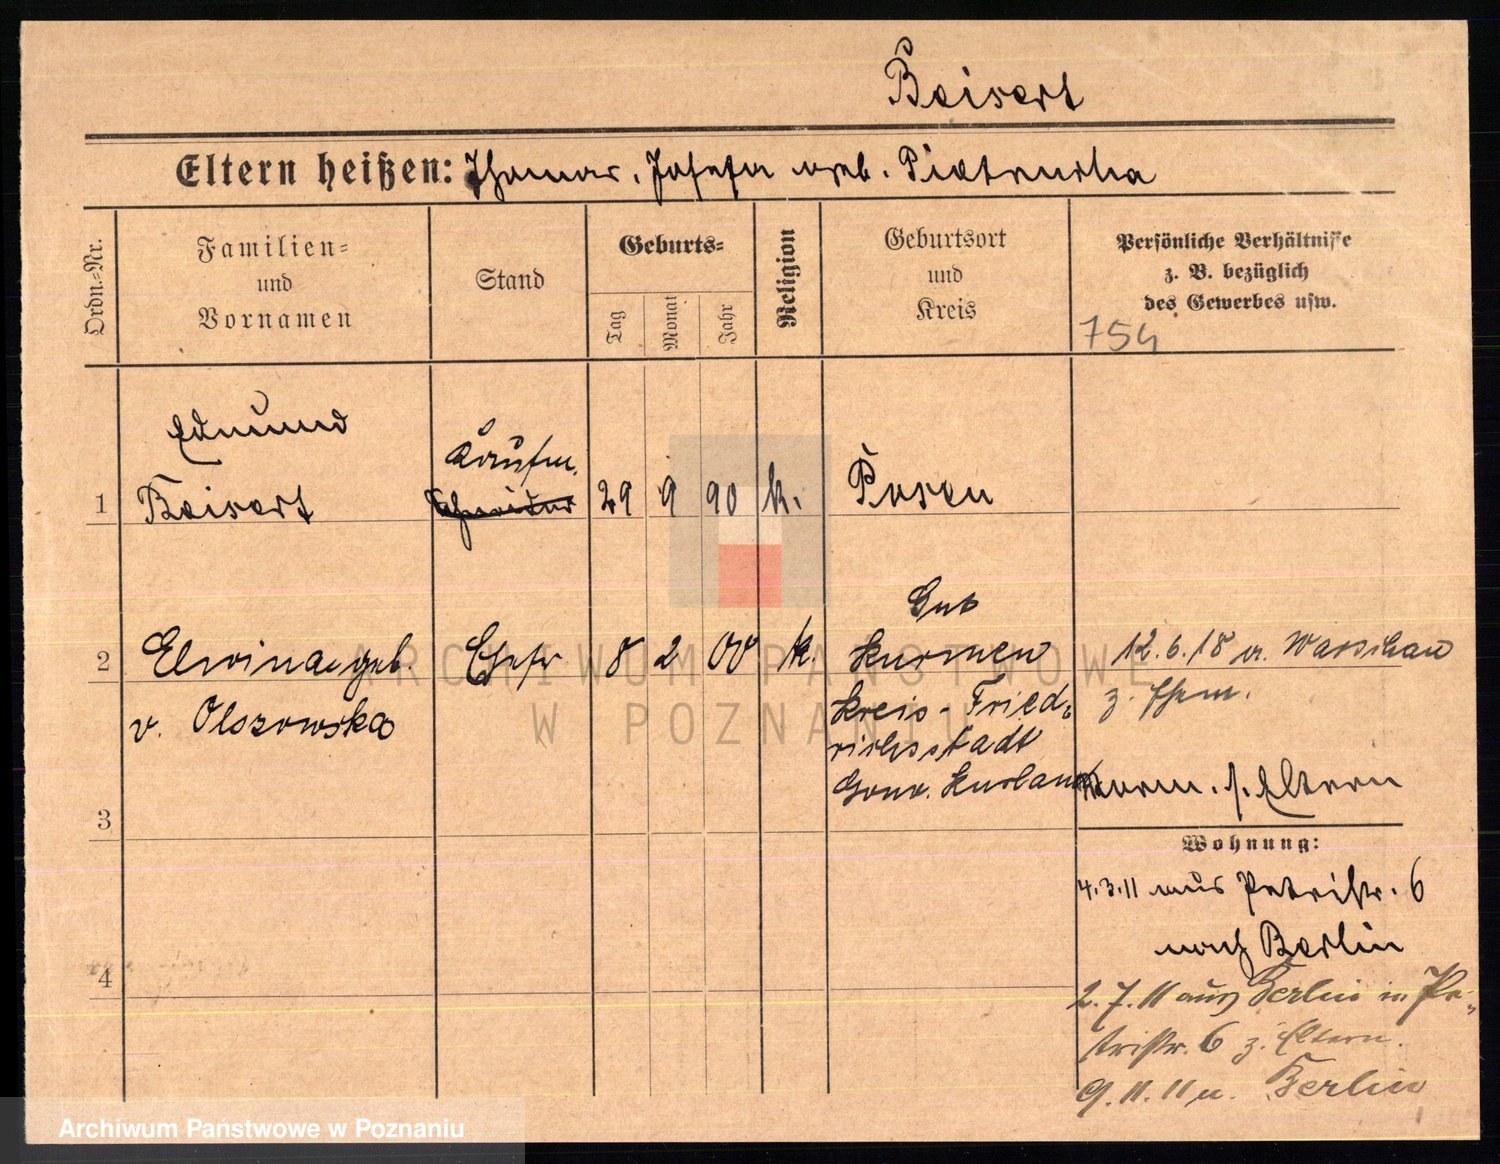 Beisert
Eltern heißen: Thomas, Josefa geb. Pietruska
Ordn.-Nr.
Familien-
und
Vornamen
Stand
Geburts-
Tag
Monat
Jahr
Religion
Geburtsort
und
Kreis
Persönliche Verhältnisse
z. B. bezüglich
des Gewerbes usw.
754
Edmund
Kaufm.
1 Beisert Schneider 29 9 90 k. Posen
Gut
2 Elwina geb. Ehefr 8 2 00 k. Kurmen 12.6.18 n. Warschau
v. Olszowska Kreis-Fried-
z. Ehem.
richsstadt
Gouv. Kurland
Verm. s. Eltern
3
Wohnung:
4.3.11 aus Petristr. 6
nach Berlin
4
2.7.11 aus Berlin in Pe-
tristr. 6 z. Eltern.
9.11.11 n. Berlin
ARCHIWUM PAŃSTWOWE
W POZNANIU
Archiwum Państwowe w Poznaniu